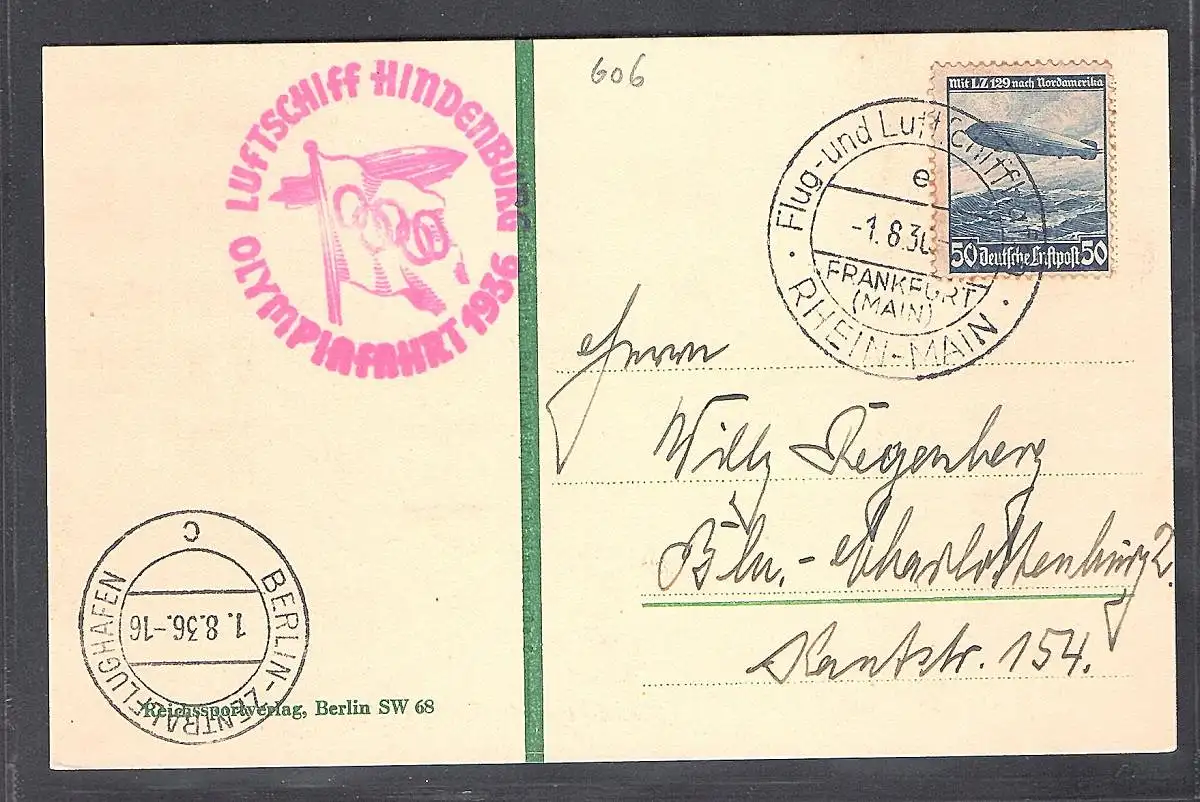 606
LUFTSCHIFF HINDENBURG
OLYMPIAFAHRT 1936
Mit LZ 129 nach Nordamerika
50 Deutsche Luftpost 50
Flug- und Luftschiffhafen
e
-1.8.36
FRANKFURT
(MAIN)
RHEIN-MAIN
Herrn
Willy Regenberg
Bln.-Charlottenburg 2.
Kantstr. 154.
BERLIN-ZENTRALFLUGHAFEN
c
1.8.36.-16
Reichssportverlag, Berlin SW 68